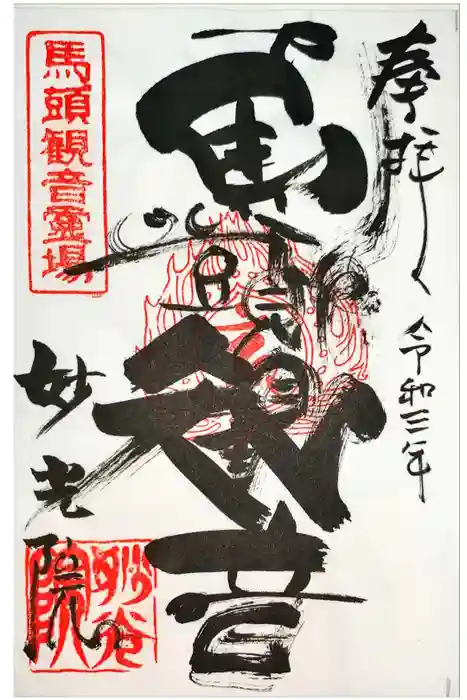 奉拝
令和三年
馬頭観音
馬頭観音霊場
妙光院